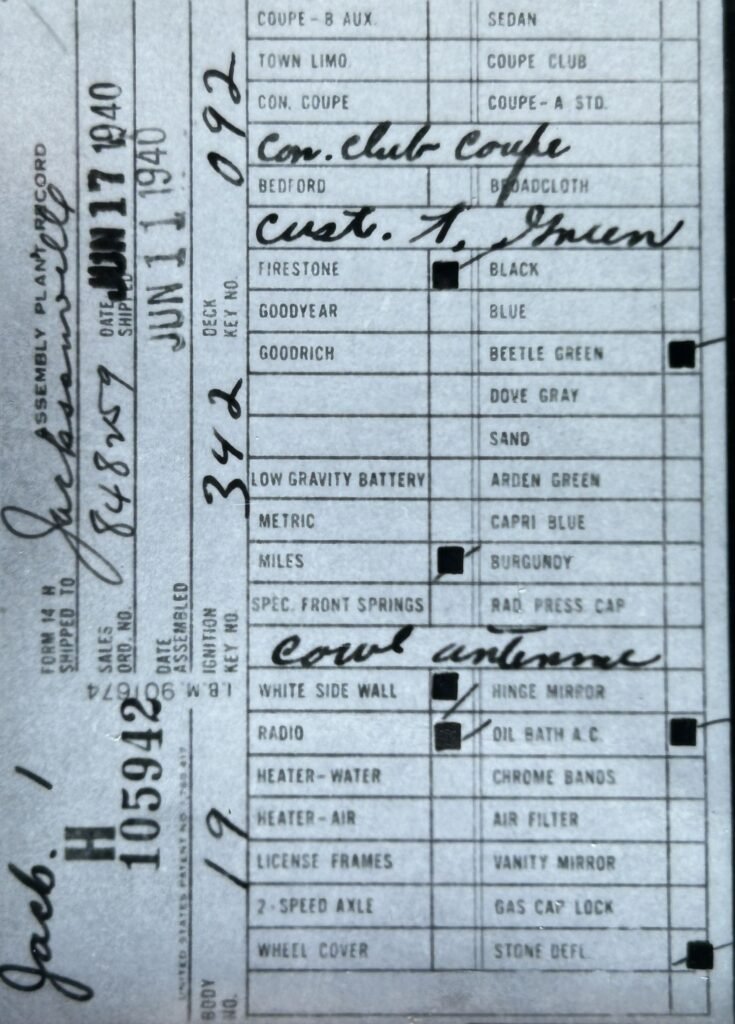 COUPE-B AUX. SEDAN
TOWN LIMO. COUPE CLUB
CON. COUPE COUPE-A STD.
Con. club coupe
BEDFORD BROADCLOTH
Cust. T. Green
FIRESTONE BLACK
GOODYEAR BLUE
GOODRICH BEETLE GREEN
DOVE GRAY
SAND
LOW GRAVITY BATTERY ARDEN GREEN
METRIC CAPRI BLUE
MILES BURGUNDY
SPEC. FRONT SPRINGS RAD. PRESS CAP
cowl antenna
WHITE SIDE WALL HINGE MIRROR
RADIO OIL BATH A.C.
HEATER-WATER CHROME BANDS
HEATER-AIR AIR FILTER
LICENSE FRAMES VANITY MIRROR
2-SPEED AXLE GAS CAP LOCK
WHEEL COVER STONE DEFL.
Jacb. 1
FORM 14 H ASSEMBLY PLANT RECORD
SHIPPED TO Jacksonville
H 105942
SALES ORD. NO. 848259 DATE SHIPPED JUN 17 1940
DATE ASSEMBLED JUN 11 1940
I.B.M. 901674
UNITED STATES PATENT NO.
BODY NO. 19 IGNITION KEY NO. 342 DECK KEY NO. 092